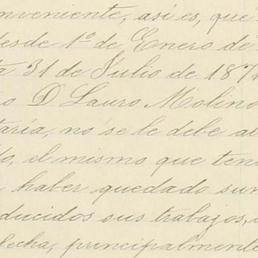 nveniente, así es, que
desde 1º de Enero de
31 de Julio de 187
o D Lauro Molino
taría, no se le debe a
o, el mismo que ten
haber quedado su
ducidos sus trabajos,
fecha, principalmente